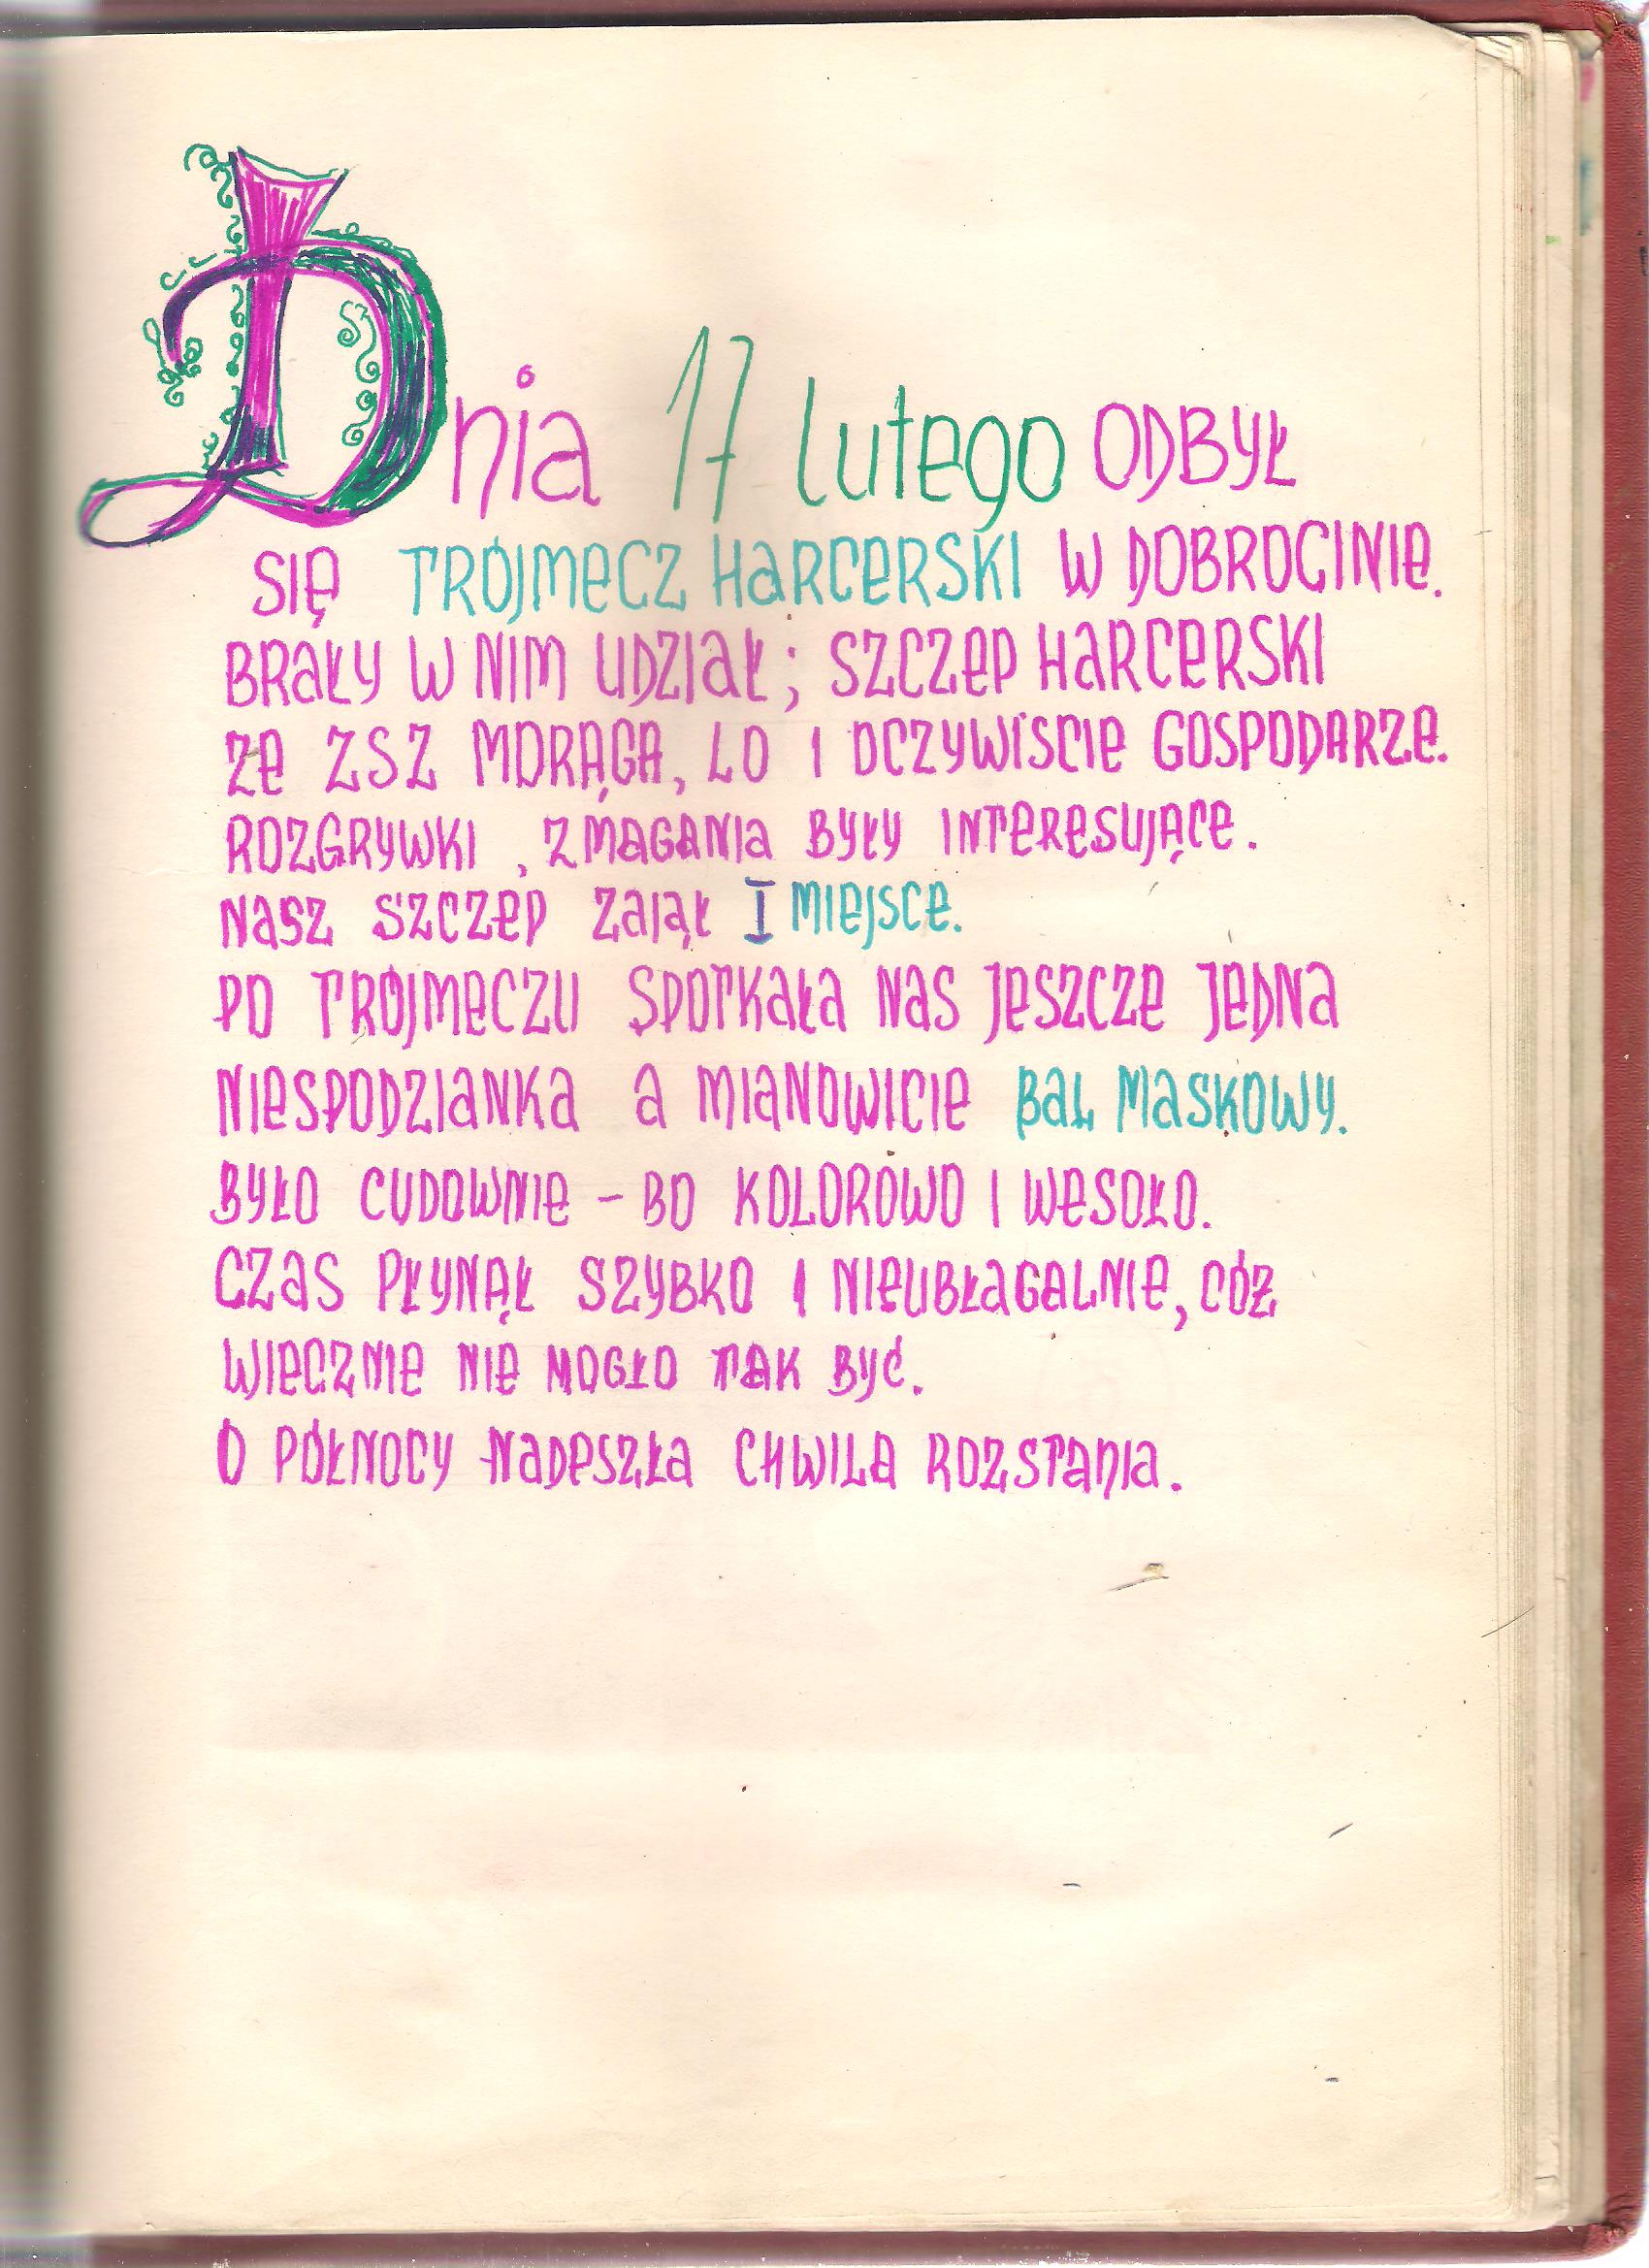 Dnia 17 lutego ODBYŁ
SIĘ TRÓJMECZ HARCERSKI W DOBROCINIE.
BRAŁY W NIM UDZIAŁ; SZCZEP HARCERSKI
ZE ZSZ MORĄGA, LO I OCZYWIŚCIE GOSPODARZE.
ROZGRYWKI, ZMAGANIA BYŁY INTERESUJĄCE.
NASZ SZCZEP ZAJĄŁ I MIEJSCE.
PO TRÓJMECZU SPOTKAŁA NAS JESZCZE JEDNA
NIESPODZIANKA A MIANOWICIE BAL MASKOWY.
BYŁO CUDOWNIE - BO KOLOROWO I WESOŁO.
CZAS PŁYNĄŁ SZYBKO I NIEUBŁAGALNIE, CÓŻ
WIECZNIE NIE MOGŁO TAK BYĆ.
O PÓŁNOCY NADESZŁA CHWILA ROZSTANIA.